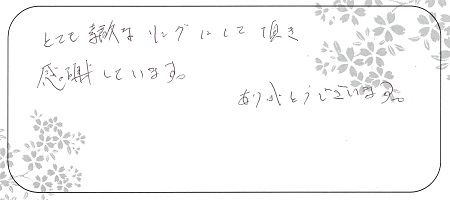 とても素敵なリングにして頂き
感謝しています。
ありがとうございます。